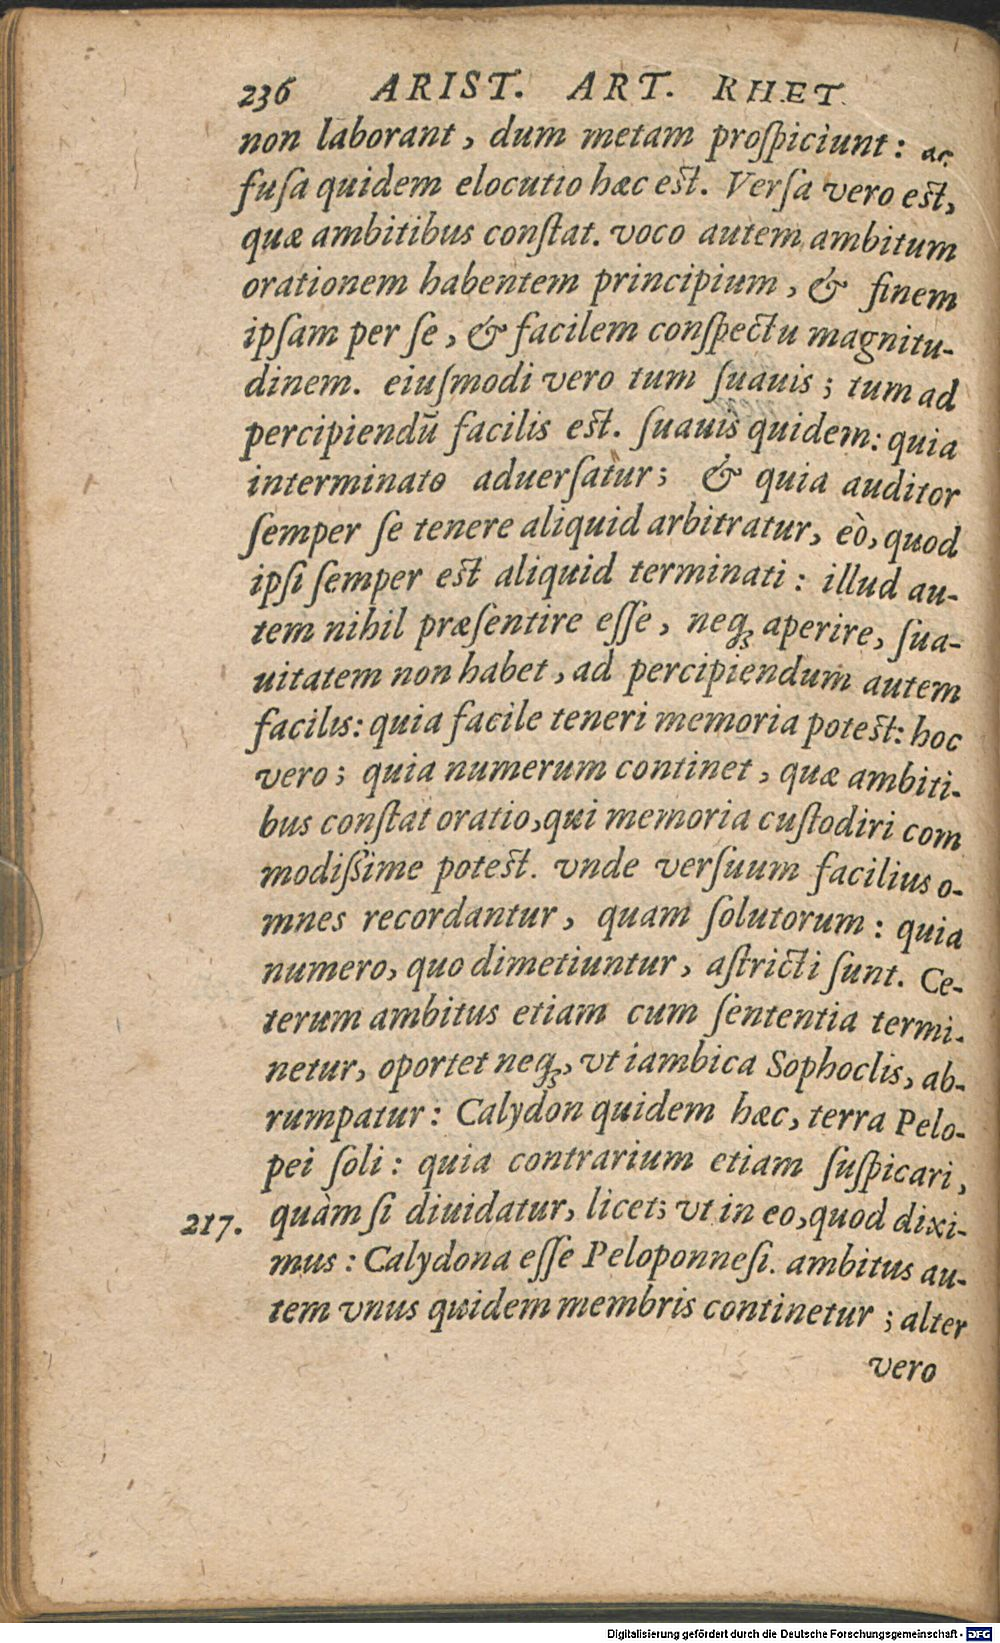 236 ARIST. ART. RHET.
non laborant, dum metam proſpiciunt: ac
fuſa quidem elocutio hæc eſt. Verſa vero eſt,
quæ ambitibus conſtat. voco autem ambitum
orationem habentem principium, & finem
ipſam per ſe, & facilem conſpectu magnitu-
dinem. eiuſmodi vero tum ſuauis; tum ad
percipiendū facilis eſt. ſuauis quidem: quia
interminato aduerſatur; & quia auditor
ſemper ſe tenere aliquid arbitratur, eò, quod
ipſi ſemper eſt aliquid terminati: illud au-
tem nihil præſentire eſſe, neq; aperire, ſua-
uitatem non habet, ad percipiendum autem
facilis: quia facile teneri memoria poteſt: hoc
vero; quia numerum continet, quæ ambiti-
bus conſtat oratio, qui memoria cuſtodiri com
modiſſime poteſt. vnde verſuum facilius o-
mnes recordantur, quam ſolutorum: quia
numero, quo dimetiuntur, aſtricti ſunt. Ce-
terum ambitus etiam cum ſententia termi-
netur, oportet neq;, vt iambica Sophoclis, ab-
rumpatur: Calydon quidem hæc, terra Pelo-
pei ſoli: quia contrarium etiam ſuſpicari,
217. quàm ſi diuidatur, licet; vt in eo, quod dixi-
mus: Calydona eſſe Peloponneſi. ambitus au-
tem vnus quidem membris continetur; alter
vero
Digitalisierung gefördert durch die Deutsche Forschungsgemeinschaft - DFG